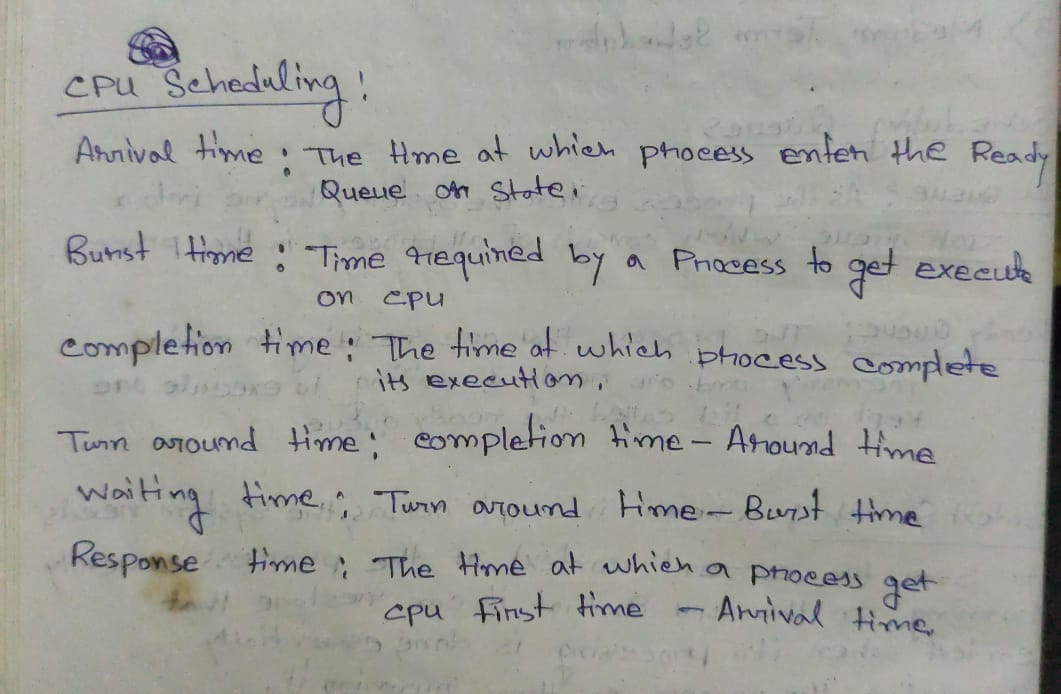 CPU Scheduling:
Arrival time : The time at which process enter the Ready
Queue or State.
Burst time : Time required by a Process to get execute
on CPU
Completion time : The time at which process complete
its execution.
Turn around time : completion time - Around time
Waiting time : Turn around time - Burst time
Response time : The time at which a process get
CPU First time - Arrival time.